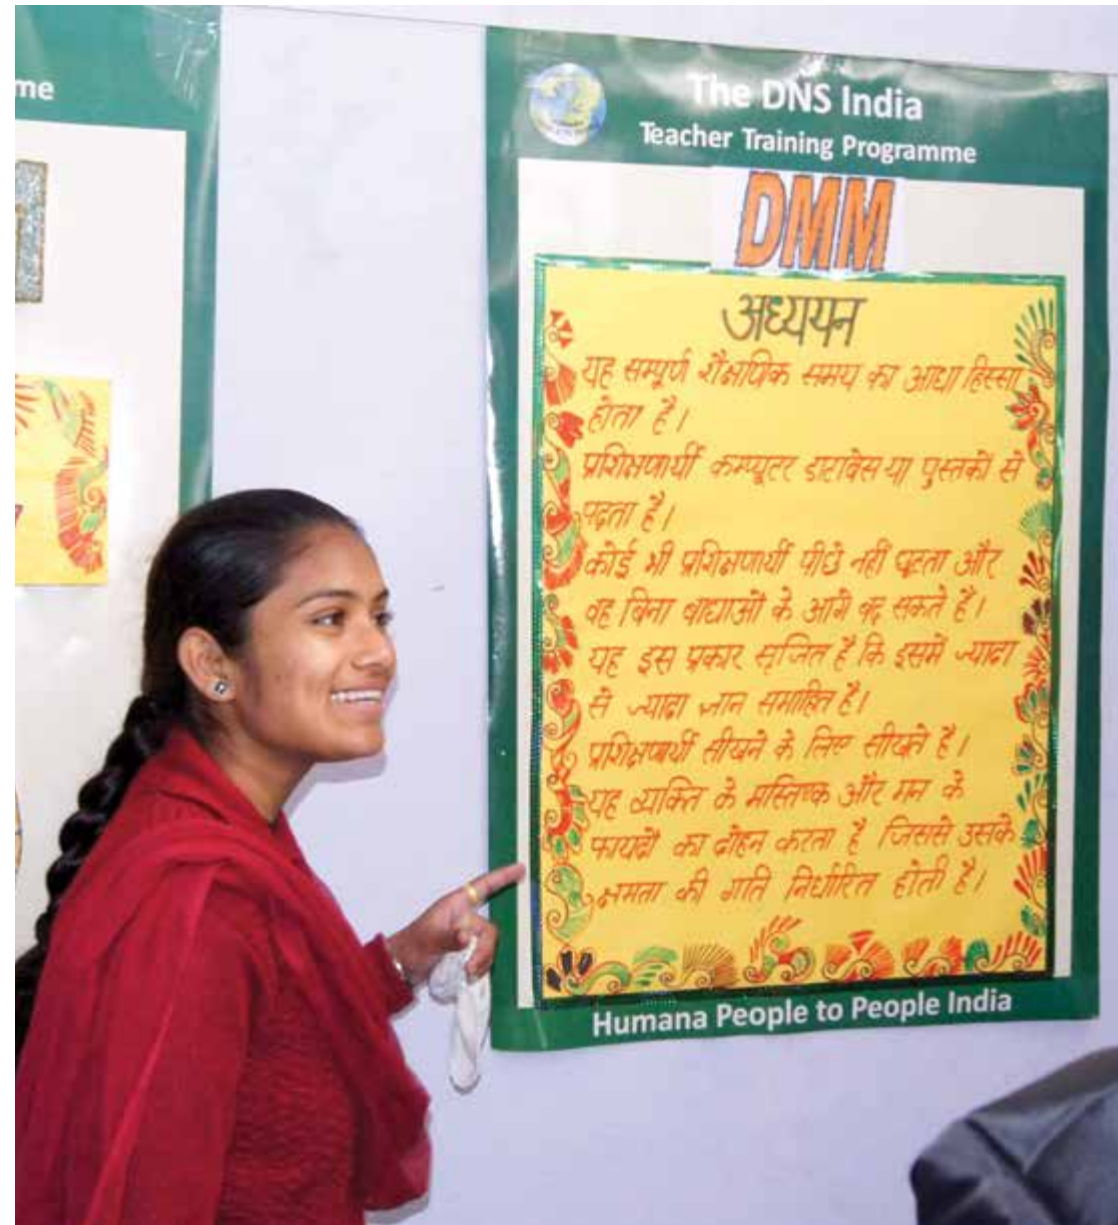 me
The DNS India
Teacher Training Programme
DMM
अध्ययन
यह सम्पूर्ण शैक्षणिक समय का आधा हिस्सा
होता है।
प्रशिक्षणार्थी कम्प्यूटर डाटावेस या पुस्तकों से
पढ़ता है।
कोई भी प्रशिक्षणार्थी पीछे नहीं छूटता और
वह बिना बाधाओं के आगे बढ़ सकते है।
यह इस प्रकार सृजित है कि इसमें ज्यादा
से ज्यादा ज्ञान समाहित है।
प्रशिक्षणार्थी सीखने के लिए सीखते है।
यह व्यक्ति के मस्तिष्क और मन के
फायदों का दोहन करता है जिससे उसके
क्षमता की गति निर्धारित होती है।
Humana People to People India